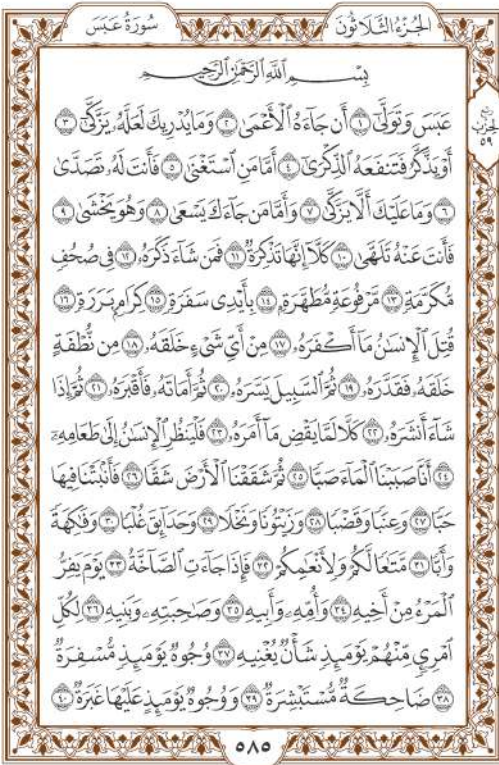 سُورَةُ عَبَسَ
الجُزْءُ الثَّلَاثُونَ
بِسْمِ اللَّهِ الرَّحْمَٰنِ الرَّحِيمِ
عَبَسَ وَتَوَلَّىٰٓ ١ أَن جَآءَهُ ٱلْأَعْمَىٰ ٢ وَمَا يُدْرِيكَ لَعَلَّهُۥ يَزَّكَّىٰٓ ٣
أَوْ يَذَّكَّرُ فَتَنفَعَهُ ٱلذِّكْرَىٰٓ ٤ أَمَّا مَنِ ٱسْتَغْنَىٰ ٥ فَأَنتَ لَهُۥ تَصَدَّىٰ
٦ وَمَا عَلَيْكَ أَلَّا يَزَّكَّىٰ ٧ وَأَمَّا مَن جَآءَكَ يَسْعَىٰ ٨ وَهُوَ يَخْشَىٰ ٩
فَأَنتَ عَنْهُ تَلَهَّىٰ ١٠ كَلَّآ إِنَّهَا تَذْكِرَةٌ ١١ فَمَن شَآءَ ذَكَرَهُۥ ١٢ فِى صُحُفٍ
مُّكَرَّمَةٍ ١٣ مَّرْفُوعَةٍ مُّطَهَّرَةٍۭ ١٤ بِأَيْدِى سَفَرَةٍ ١٥ كِرَامٍۭ بَرَرَةٍ ١٦
قُتِلَ ٱلْإِنسَٰنُ مَآ أَكْفَرَهُۥ ١٧ مِنْ أَىِّ شَىْءٍ خَلَقَهُۥ ١٨ مِن نُّطْفَةٍ
خَلَقَهُۥ فَقَدَّرَهُۥ ١٩ ثُمَّ ٱلسَّبِيلَ يَسَّرَهُۥ ٢٠ ثُمَّ أَمَاتَهُۥ فَأَقْبَرَهُۥ ٢١ ثُمَّ إِذَا
شَآءَ أَنشَرَهُۥ ٢٢ كَلَّا لَمَّا يَقْضِ مَآ أَمَرَهُۥ ٢٣ فَلْيَنظُرِ ٱلْإِنسَٰنُ إِلَىٰ طَعَامِهِۦٓ
٢٤ أَنَّا صَبَبْنَا ٱلْمَآءَ صَبًّا ٢٥ ثُمَّ شَقَقْنَا ٱلْأَرْضَ شَقًّا ٢٦ فَأَنۢبَتْنَا فِيهَا
حَبًّا ٢٧ وَعِنَبًا وَقَضْبًا ٢٨ وَزَيْتُونًا وَنَخْلًا ٢٩ وَحَدَآئِقَ غُلْبًا ٣٠ وَفَٰكِهَةً
وَأَبًّا ٣١ مَّتَٰعًا لَّكُمْ وَلِأَنْعَٰمِكُمْ ٣٢ فَإِذَا جَآءَتِ ٱلصَّآخَّةُ ٣٣ يَوْمَ يَفِرُّ
ٱلْمَرْءُ مِنْ أَخِيهِ ٣٤ وَأُمِّهِۦ وَأَبِيهِ ٣٥ وَصَٰحِبَتِهِۦ وَبَنِيهِ ٣٦ لِكُلِّ
ٱمْرِئٍ مِّنْهُمْ يَوْمَئِذٍ شَأْنٌ يُغْنِيهِ ٣٧ وُجُوهٌ يَوْمَئِذٍ مُّسْفِرَةٌ
٣٨ ضَاحِكَةٌ مُّسْتَبْشِرَةٌ ٣٩ وَوُجُوهٌ يَوْمَئِذٍ عَلَيْهَا غَبَرَةٌ ٤٠
رُبْعُ
الحِزْبِ
٥٩
٥٨٥